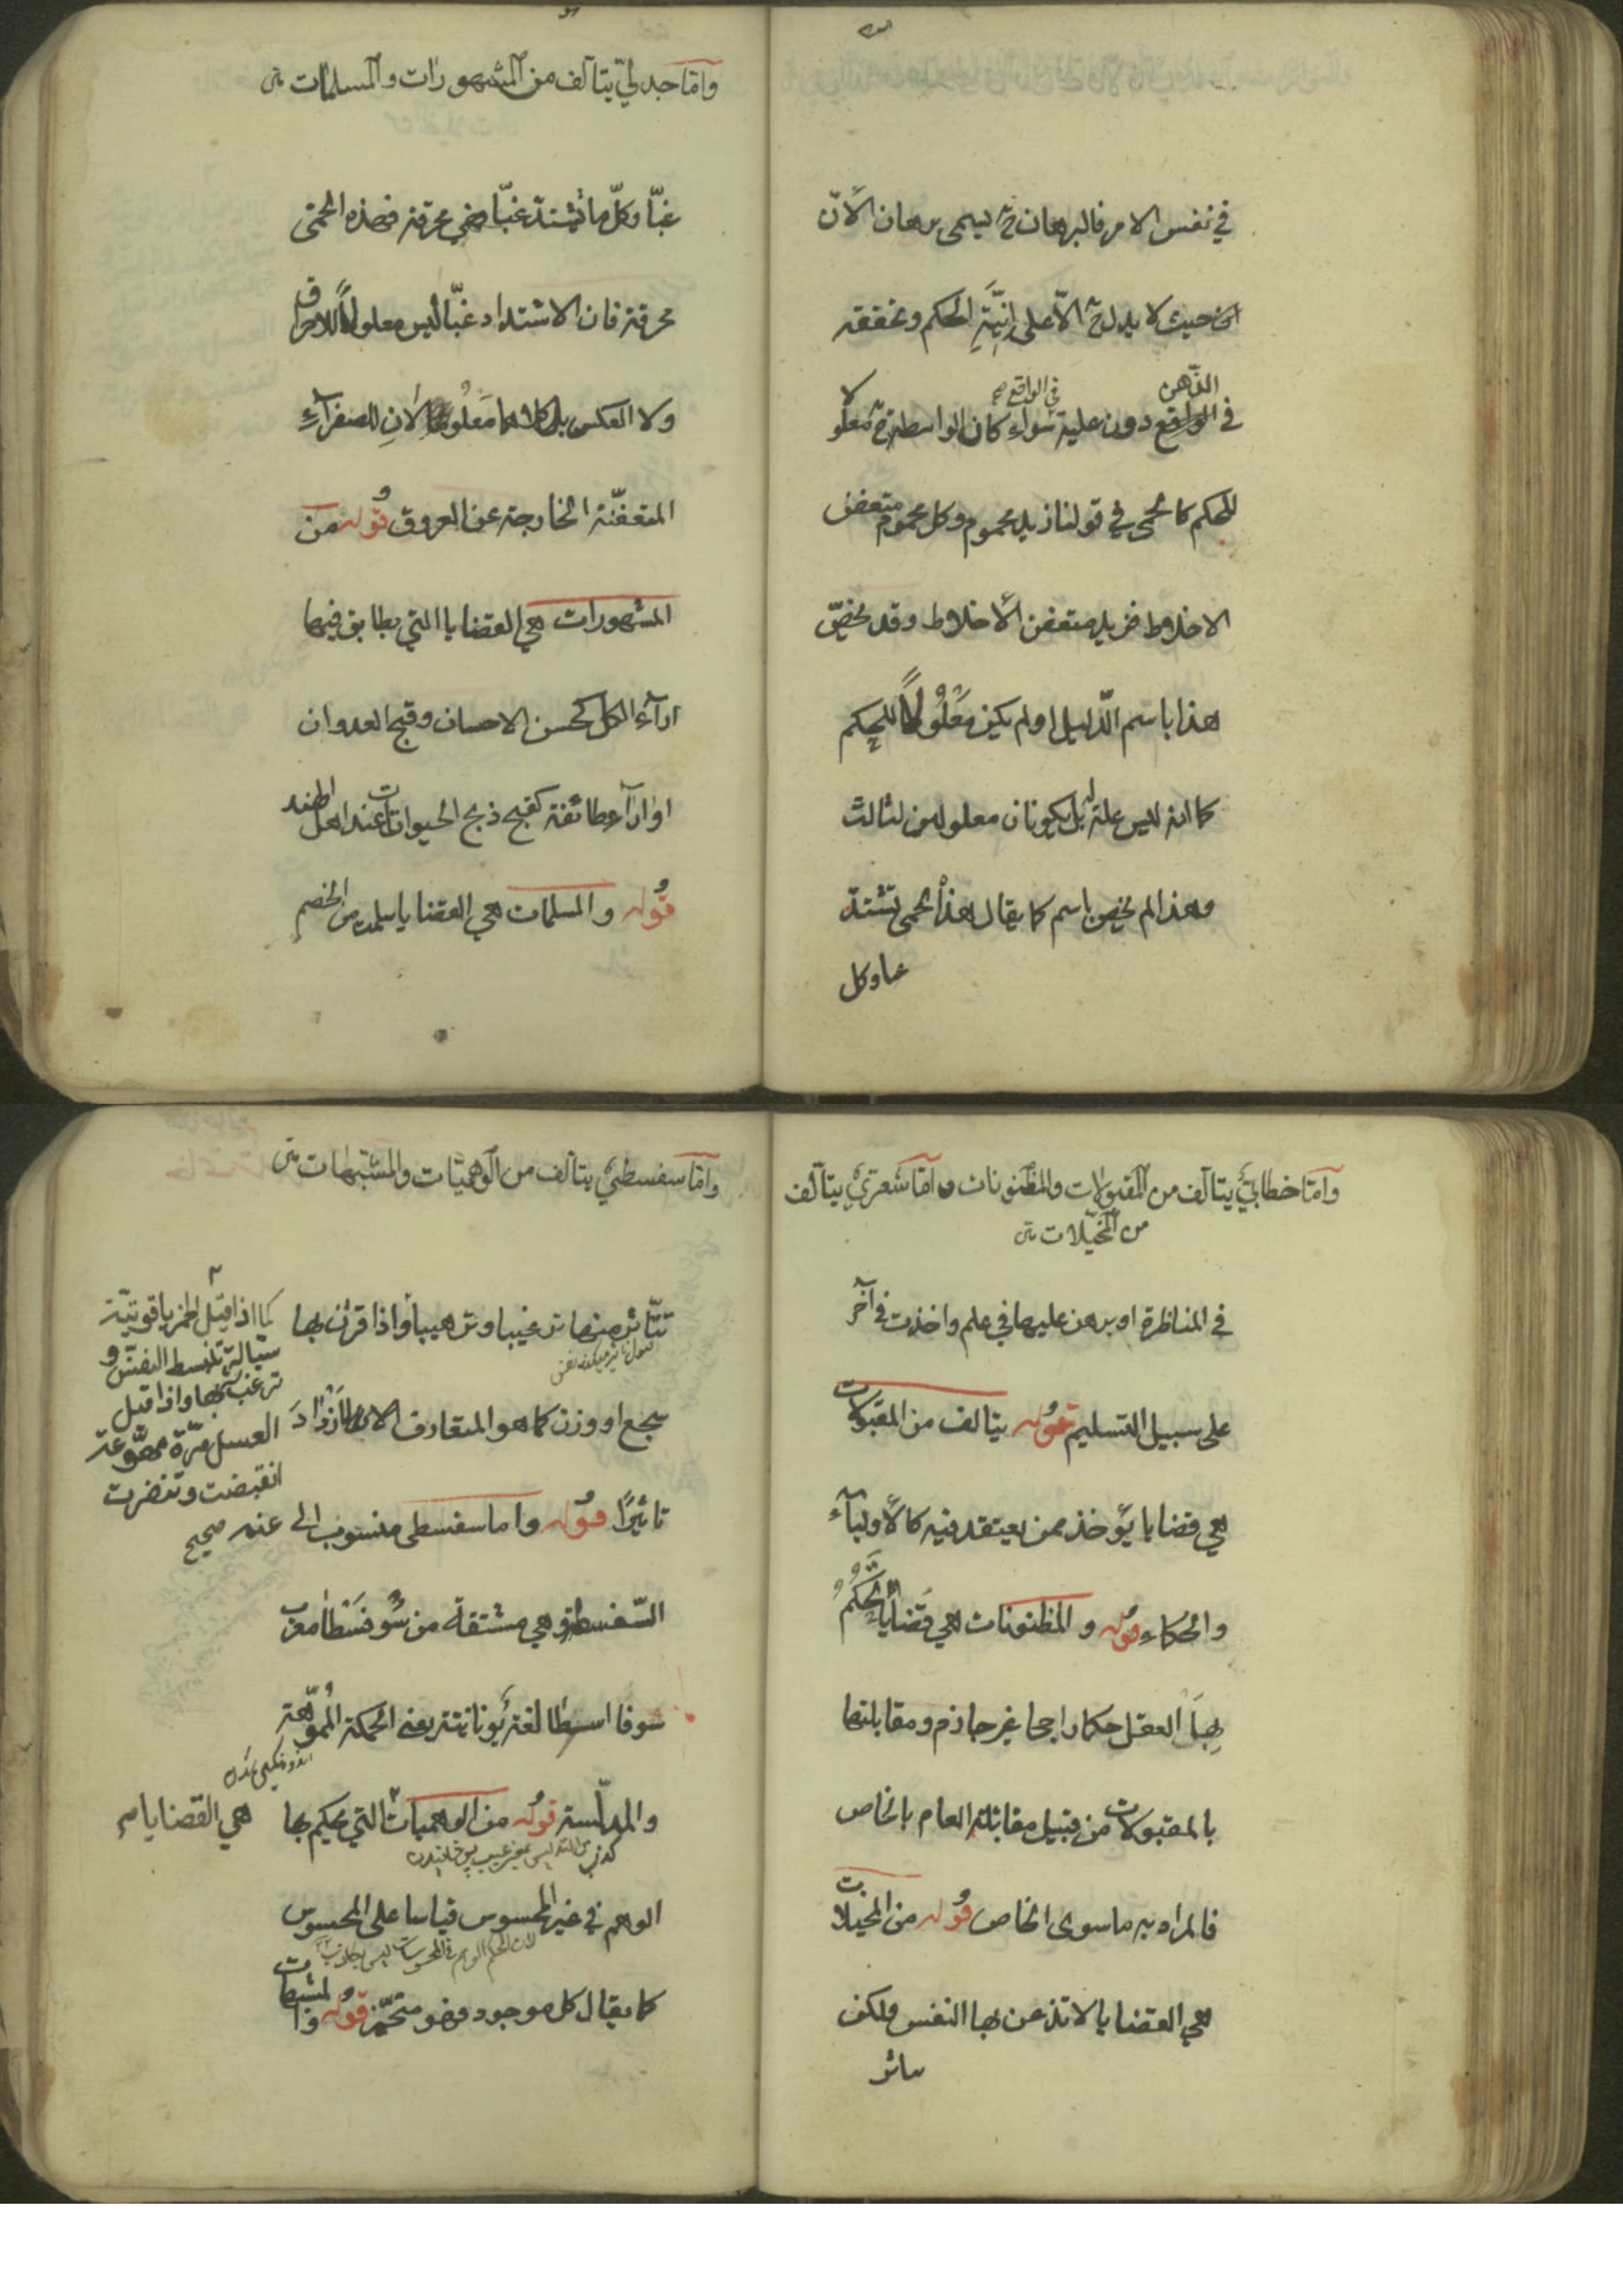 في نفس الامر فالبرهان ح يسمى برهان الأن
حيث لا يدل ح الّا على انِّيَّةِ الحكم وتحققه
الذّهن
في الواقع صح
في الواقع دون علية سواء كان الواسطة ح معلولا
للحكم كالحمى في قولنا زيد محموم وكل محموم متعفن
الاخلاط فزيد متعفن الأخلاط وقد يخصّ
هذا باسم الدّليل اولم يكن مَعْلُولًا للحكم
كما انه ليس علة له بل يكونان معلولين لثالث
وهذا لم يخص باسم كما يقال هذه الحمى تشتدّ
غبا وكل
وامّا جدليّ يتألف من المشهورات والمسلمات
غبّا وكلّ ما تشتدّ غبّا فهي محرقة فهذه الحمّى
محرقة فان الاشتداد غبّا ليس معلولًا للاحراق
ولا العكس بل كلاهما مَعلُولان للصفرآء
المتعفّنة الخارجة عن العروق قوله من
المشهورات هي القضايا التي يطابق فيها
ارآء الكل كحسن الاحسان وقبح العدوان
او ارآء طائفة كقبح ذبح الحيوانات عند اهل الهند
قوله والمسلمات هي القضايا يسلم من الخصم
وامّا خطابيّ يتألف من المقبولات والمظنونات وامّا شعريّ يتألف
من المخيّلات
في المناظرة او برهن عليها في علم واخذت في آخر
على سبيل التسليم قوله يتألف من المقبولات
هي قضايا يؤخذ ممن يعتقد فيه كالأوليآء
والحكماء قوله والمظنونات هي قضايا يحكم
بها العقل حكما راجحا غير جازم ومقابلتها
بالمقبولات من قبيل مقابلة العام بالخاص
فالمراد به ما سوى الخاص قوله من المخيلات
هي القضايا لا تذعن بها النفس ولكن
وامّا سفسطيّ يتألف من الوهميّات والمشبّهات
تتأثر منها ترغيبا وترهيبا واذا قرن بها
سجع او وزن كما هو المتعارف الان ازداد
تاثيرًا قوله واما سفسطي منسوب الى
السّفسطة وهي مشتقة من سُوفسطا معرب
سوفا اسطا لغة يونانية يعني الحكمة المموّهة
والمدلّسة قوله من الوهميات التي يحكم بها
الوهم في غير المحسوس قياسا على المحسوس
كما يقال كل موجود فهو متحيّز قوله والمشبهات
كما اذا قيل الخمر ياقوتيّة
سيّالة تنبسط النفس و
ترغب بها واذا قيل
العسل مرّة مهوّعة
انقبضت وتنفرت
عنه صحيح
هي القضايا